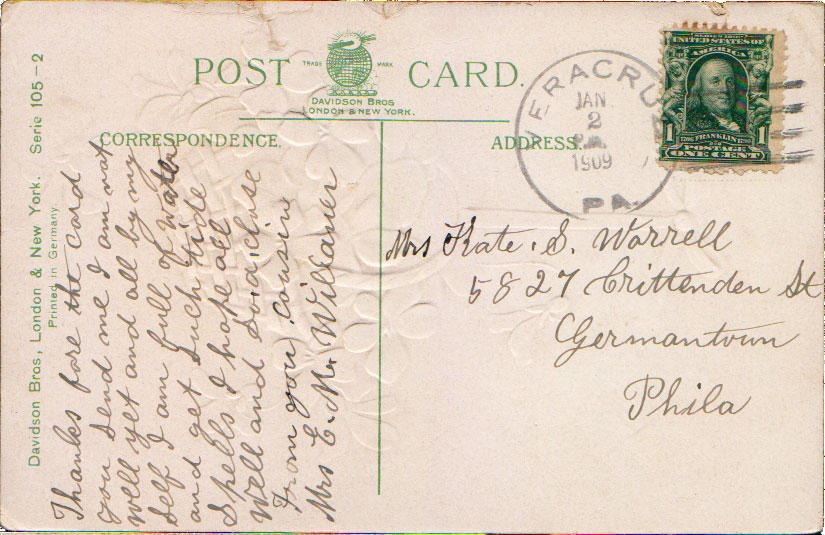 POST CARD.
TRADE MARK
DAVIDSON BROS
LONDON & NEW YORK.
CORRESPONDENCE.
ADDRESS.
Davidson Bros, London & New York. Serie 105-2
Printed in Germany.
Thanks fore the card
you send me I am not
well yet and all by my
self I am full of water
and get such tide
spells I hope all
well and so a close
From you Cousin
Mrs C. M.
VERACRUZ
JAN
2
1909
PA.
SERIES 1902
UNITED STATES OF
AMERICA
1 FRANKLIN 1
POSTAGE
ONE CENT
Mrs Kate. S. Worrell
5827 Crittenden St
Germantown
Phila